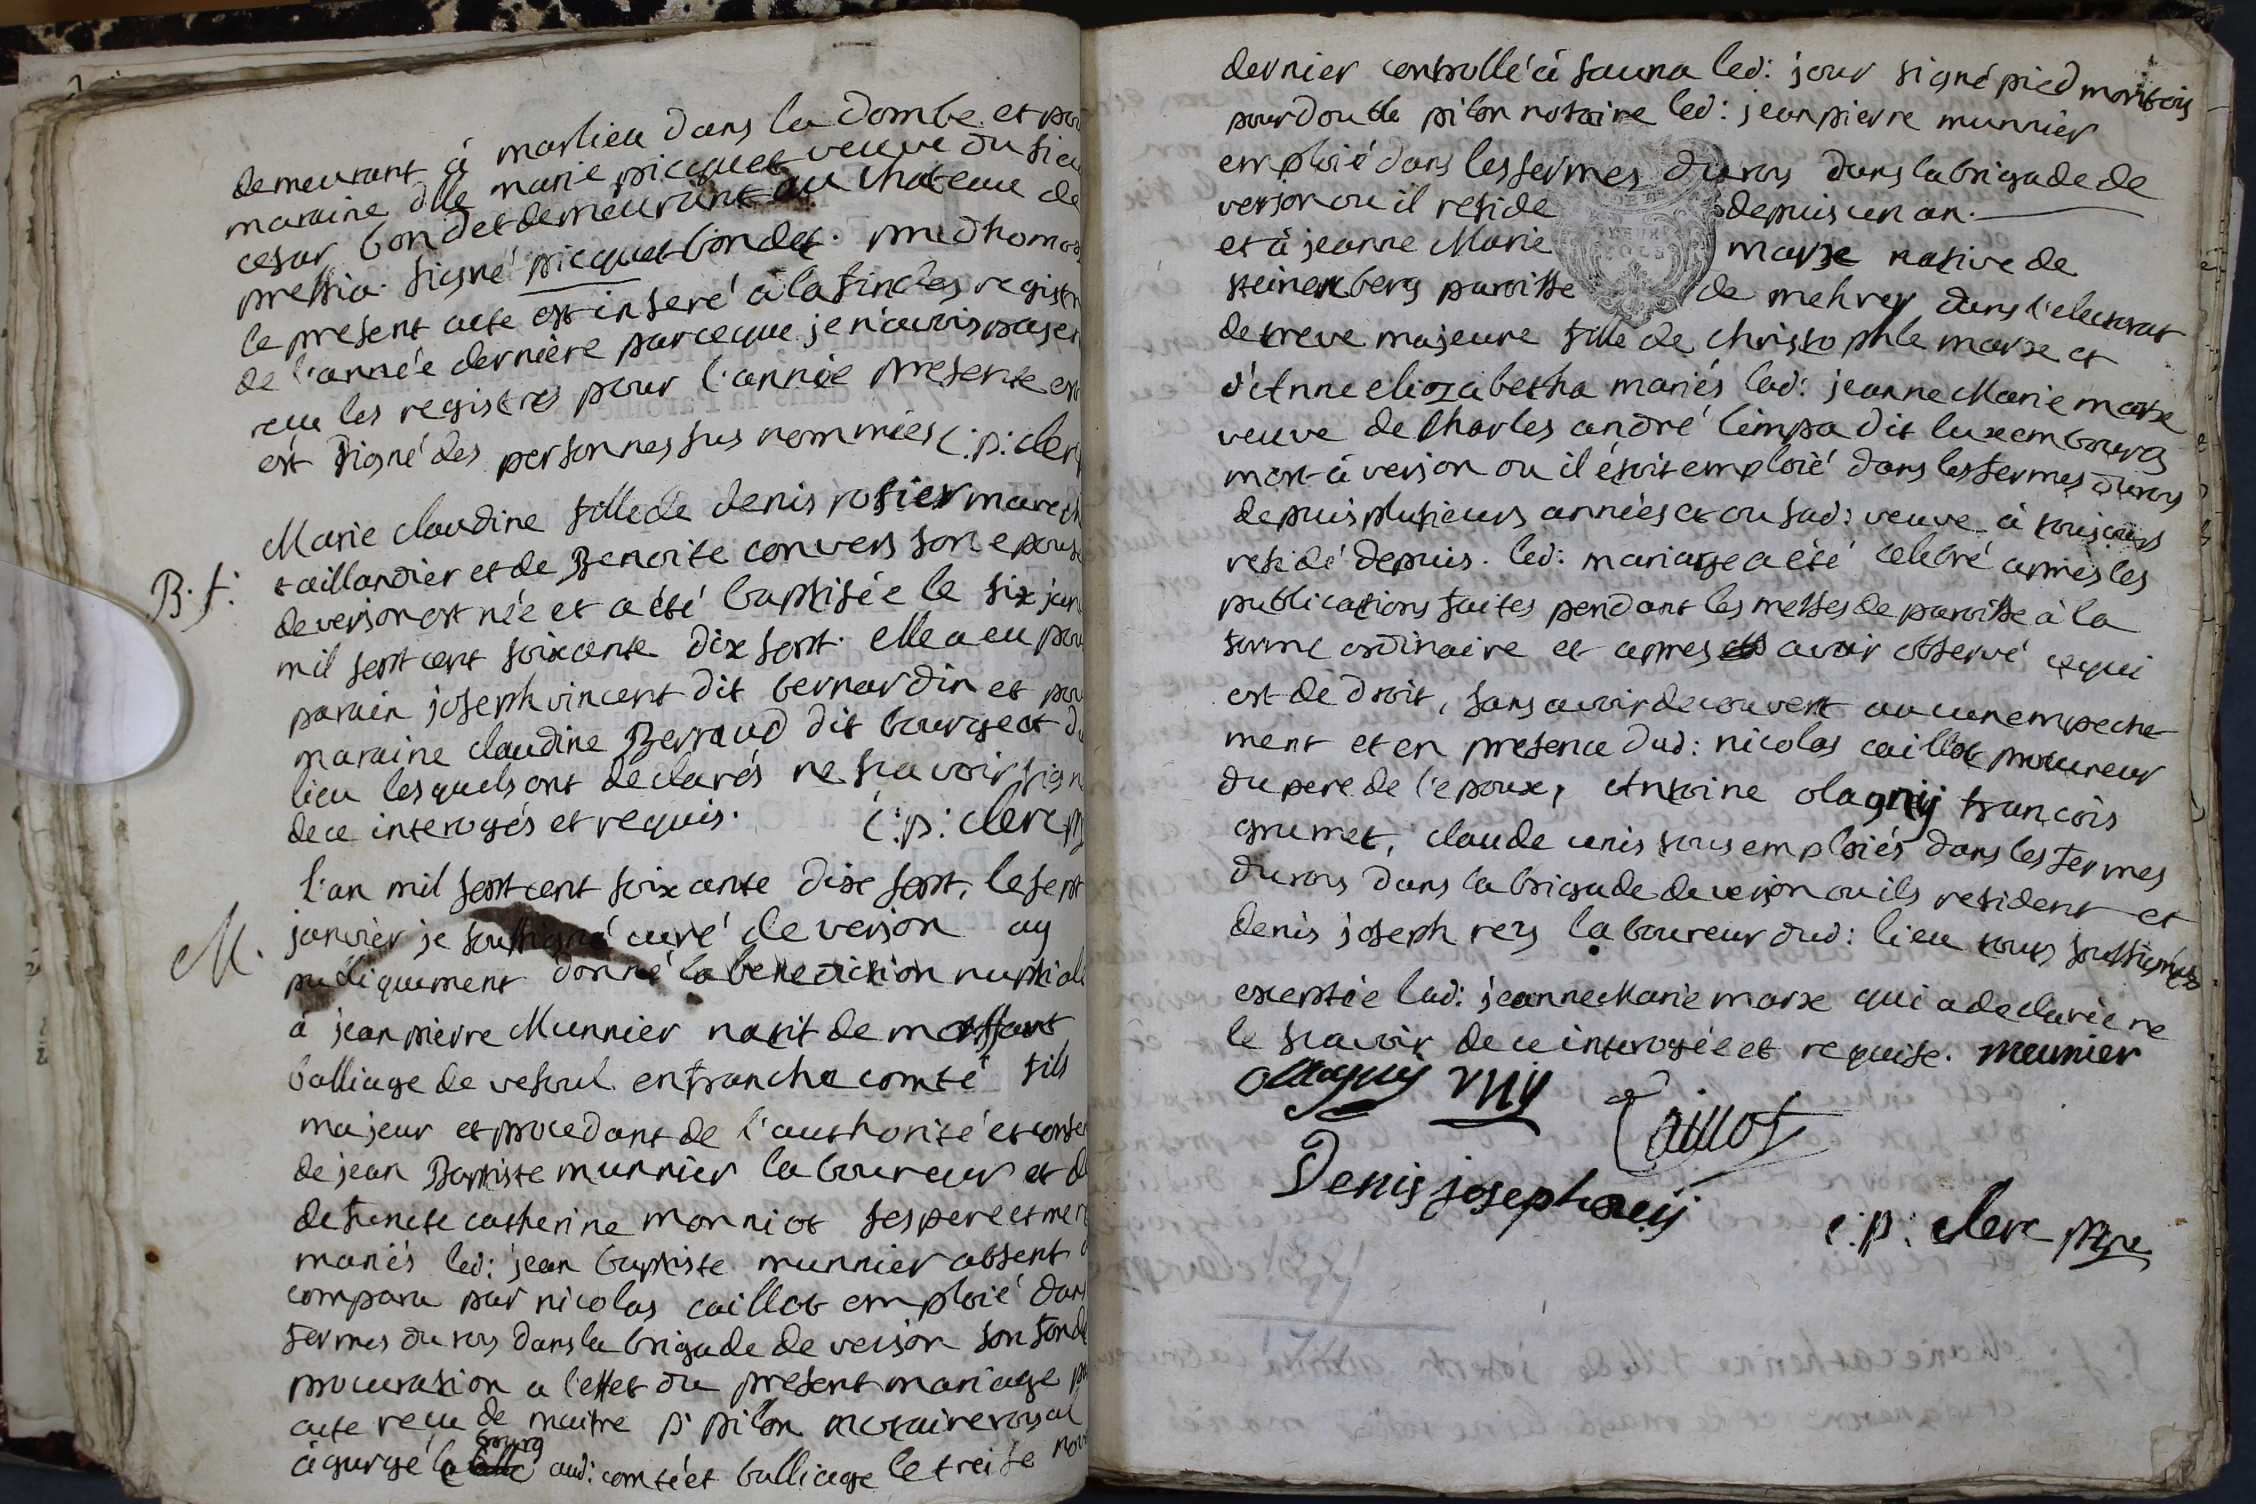 demeurant à marlieu dans la Dombe et pou
maraine dlle marie picquet veuve du sieu
cesar bondet demeurant au chateau de
pressia. signé picquet bondet. prudhomme
le present acte est inseré à la fin des registr
de l'année derniere parceque je n'avois pas en
reçu les registres pour l'année presente
est signé des personnes sus nommées c: p: clerc
Marie claudine fille de denis rosier march
B. f. taillandier et de Benoite convers son epouse
de verjon est née et a été baptisée le six jan
mil sept cent soixante dix sept. elle a eu pou
parain joseph vincent dit bernardin et pou
maraine claudine Berraud dit bourgeat du
lieu lesquels ont declarés ne sçavoir sign
de ce interogés et requis. c: p: clerc p
l'an mil sept cent soixante dix sept, le sept
M. janvier je soussigné curé de verjon ay
publiquement donné la benediction nuptiale
à jean pierre Munnier natif de
balliage de vesoul en franche comté fils
majeur et procedant de l'authorité et conse
de jean Baptiste munnier laboureur et d
defuncte catherine monniot ses pere et mere
mariés led: jean baptiste munnier absent
comparu par nicolas caillot emploié dans
fermes du roy dans la brigade de verjon son fondé
procuration a l'effet du present mariage p
acte reçu de maitre p: pilon notaire royal
bourg
à gurgé la aud: comté et balliage le treise nov
dernier controllé à sauna led: jour signé piedmontois
pour double pilon notaire led: jean pierre munnier
emploié dans les fermes du roy dans la brigade de
verjon ou il reside depuis un an.
et à jeanne Marie marxe native de
steinenberg paroisse de mehrey dans l'electorat
de treve majeure fille de christophle marxe et
d'Anne elizabetha mariés lad: jeanne Marie marxe
veuve de charles andré limpa dit luxembourg
mort à verjon ou il étoit emploié dans les fermes du roy
depuis plusieurs années et ou sad: veuve à toujours
residé depuis. led: mariage a été celebré après les
publications faites pendant les messes de paroisse à la
forme ordinaire et apres avoir observé ce qui
est de droit, sans avoir decouvert aucun empeche
ment et en presence dud: nicolas caillot procureur
du pere de l'epoux, Antoine olagnÿ françois
grumet, claude unis tous emploiés dans les fermes
du roy dans la brigade de verjon ou ils resident et
denis joseph rey laboureur dud: lieu tous soussignés
exceptée lad: jeanne Marie marxe qui a declarée ne
le sçavoir de ce interogée et requise. meunier
ollagny Caillot
Denis joseph reÿ
c: p: clerc ptre